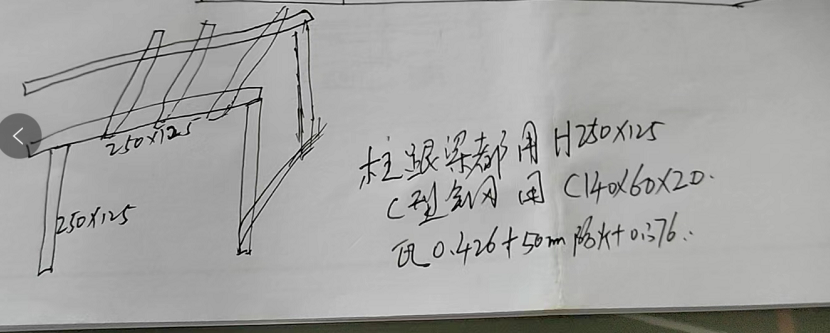 250×125
250×125
柱跟梁都用H250×125
C型钢用C140×60×20.
瓦0.426+50mm防火+0.376..